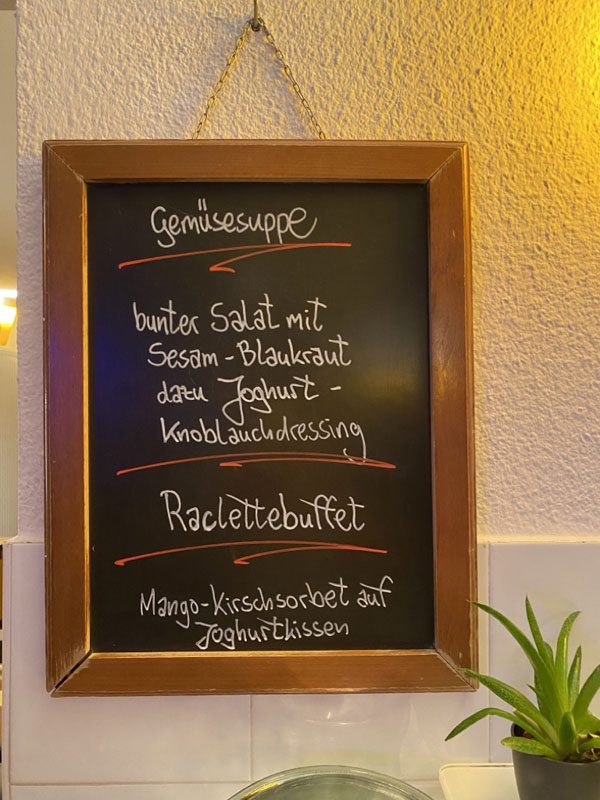 Gemüsesuppe
bunter Salat mit
Sesam-Blaukraut
dazu Joghurt-
Knoblauchdressing
Raclettebuffet
Mango-Kirschsorbet auf
Joghurtkissen